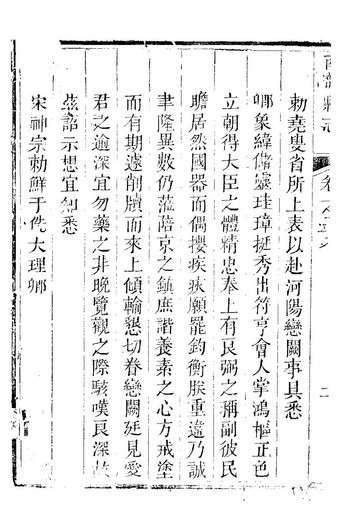 勅堯叟省所上表以赴河陽戀闕事具悉
卿象緯儲靈珪璋挺秀出符亨會人掌鴻樞正色
立朝得大臣之體精忠奉上有良弼之稱副彼民
瞻居然國器而偶攖疾疢願罷鈞衡朕重違乃誠
聿隆異數仍蒞陪京之鎮庶諧養素之心方戒塗
而有期遽削牘而來上傾輸懇切眷戀闕廷見愛
君之逾深宜勿藥之非晚覽觀之際駭嘆良深故
茲詔示想宜知悉
宋神宗勅鮮于侁大理卿
二